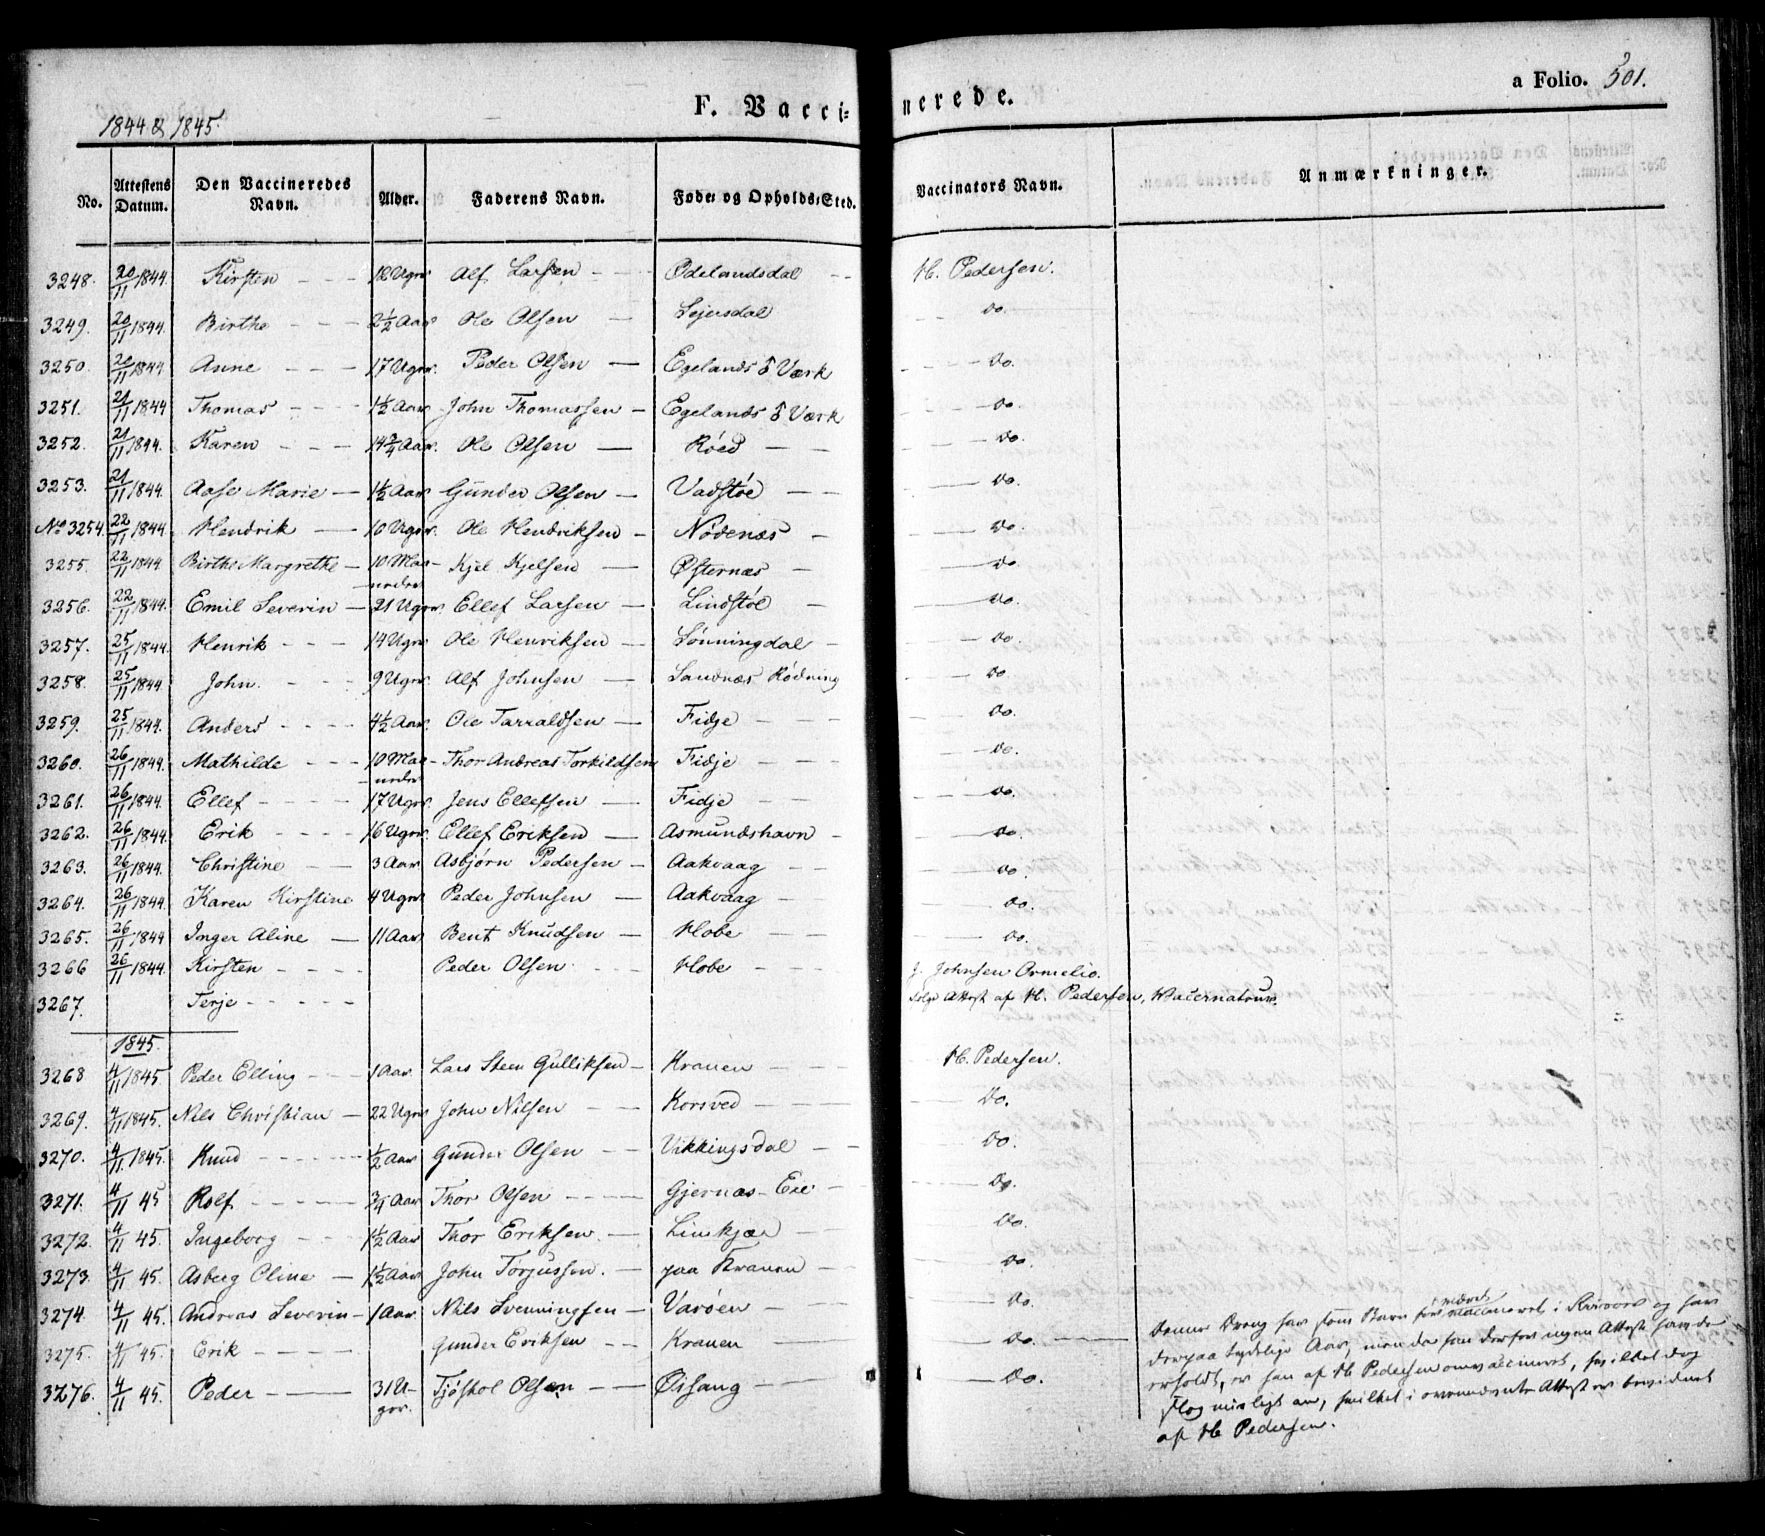 1844 & 1845.
F. Vaccinerede.
a Folio. 501.
No. | Attestens Datum. | Den Vaccineredes Navn. | Alder. | Faderens Navn. | Føde- og Opholds-Sted. | Vaccinators Navn. | Anmærkninger.
3248. 20/11 1844. Kirsten 18 Ugr. Alf Larsen Ødelandsdal H. Pedersen.
3249. 20/11 1844. Birthe 2 1/2 Aar Ole Olsen Lejersdal do.
3250. 21/11 1844 Anne 17 Ugr. Peder Olsen Egelands Værk do.
3251. 21/11 1844 Thomas 1 1/2 Aar John Thomassen Egelands Værk do.
3252. 21/11 1844. Karen 14 3/4 Aar. Ole Olsen Røed do.
3253. 21/11 1844. Aase Marie 1 1/2 Aar Gunder Olsen Vadstøe do.
No 3254. 22/11 1844 Hendrik 10 Ugr. Ole Hendriksen Nødenæs do.
3255. 22/11 1844 Birthe Margrethe 10 Maaneder Kjel Kjelsen Østernæs do.
3256. 22/11 1844. Emil Severin 21 Ugr. Ellef Larsen Lindstøl do.
3257. 25/11 1844. Henrik 14 Ugr. Ole Henriksen Lønningdal do.
3258. 25/11 1844. John. 9 Ugr. Alf Johnsen Sandnæs Rødning do.
3259. 25/11 1844. Anders 4 1/2 Aar. Ole Tarraldsen Fidje do.
3260. 26/11 1844. Mathilde 10 Maaneder Thor Andreas Torkildsen Fidje do.
3261. 26/11 1844. Ellef 17 Ugr. Jens Ellefsen Fidje do.
3262. 26/11 1844. Erik 16 Ugr. Ellef Eriksen Asmundshavn do.
3263. 26/11 1844. Christine 3 Aar Asbjørn Pedersen Aakvaag do.
3264. 26/11 1844. Karen Kirstine 4 Ugr. Peder Johnsen Aakvaag do.
3265. 26/11 1844 Inger Aline 11 Aar Bent Knudsen Hobe do.
3266 26/11 1844. Kirsten Peder Olsen Hobe J. Johnsen Ormelio.
3267. Terje Attest af H. Pedersen,
1845.
3268 4/11 1845 Peder Elling 1 Aar Lars Steen Gulliksen Kranen H. Pedersen.
3269. 4/11 1845. Nils Christian 22 Ugr John Nilsen Korsved Do.
3270. 4/11 1845. Knud 1/2 Aar Gunder Olsen Vikkingsdal Do.
3271. 4/11 45 Rolf 3/4 Aar Thor Olsen Gjernæs-Eie Do.
3272. 4/11 45. Ingeborg 1 1/2 Aar Thor Eriksen. Linkjær Do.
3273. 4/11 45. Asberg Oline 1 1/2 Aar John Torjussen. paa Kranen Do.
3274. 4/11 45. Andreas Severin 1 Aar Nils Svenningsen Varøen Do.
3275. 4/11 45. Erik Gunder Eriksen Kranen Do.
3276. 4/11 45. Peder 31 Ugr. Tjøstol Olsen Øisang Do.
Denne Dreng har som Barn været vaccineret i Riisøer og har
derpaa tydelige Aar, men da han derfor ingen Attest havde
erholdt, er han af H. Pedersen omvaccineret, hvilket dog
slog misligt an, hvilket i ovennævnte Attest er bevidnet
af H. Pedersen.